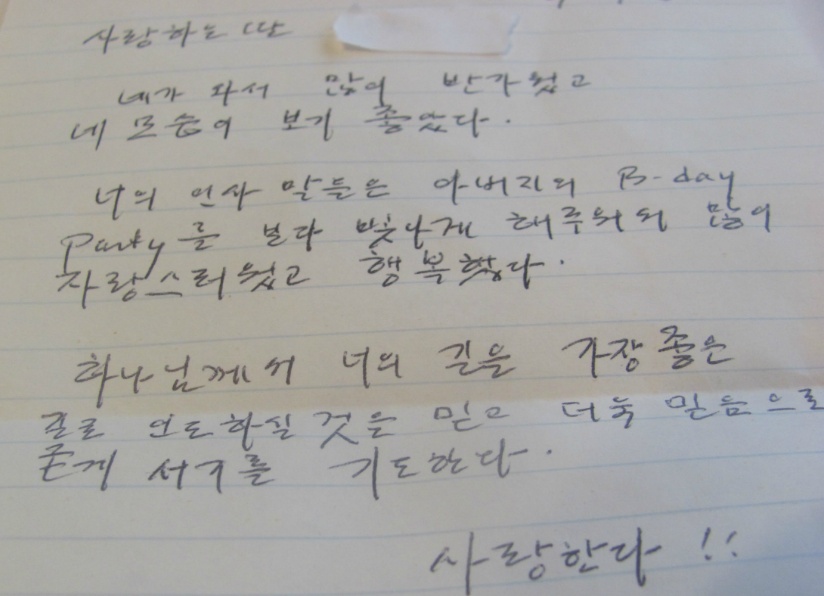 사랑하는 딸
네가 와서 많이 반가웠고
네 모습이 보기 좋았다.
너의 인사 말들은 아버지의 B-day
Party를 보다 빛나게 해주워서 많이
자랑스러웠고 행복했다.
하나님께서 너의 길을 가장 좋은
길로 인도하실 것을 믿고 더욱 믿음으로
굳게 서기를 기도한다.
사랑한다 !!